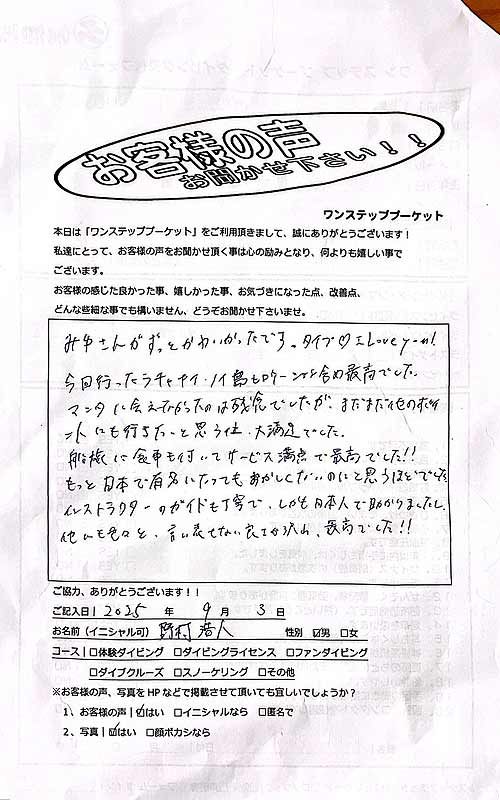 お客様の声
お聞かせ下さい！！
ワンステッププーケット
本日は「ワンステッププーケット」をご利用頂きまして、誠にありがとうございます！
私達にとって、お客様の声をお聞かせ頂く事は心の励みとなり、何よりも嬉しい事で
ございます。
お客様の感じた良かった事、嬉しかった事、お気づきになった点、改善点、
どんな些細な事でも構いません、どうぞお聞かせ下さいませ。
みゆさんがずっとかわいかったです。タイプ♡ I Love you!
今回行ったラチャナイ・ノイ島もロケーション含め最高でした。
マンタに会えなかったのは残念でしたが、まだまだ他のポイ
ントにも行きたいと思う位、大満足でした。
船旅に食事も付いてサービス満点で最高でした!!
もっと日本で有名になってもおかしくないのにと思うほどでした
インストラクターのガイドも丁寧で、しかも日本人で助かりましたし、
他にも色々と、言い表せない良さが沢山、最高でした!!
ご協力、ありがとうございます！！
ご記入日| 2025 年 9 月 3 日
お名前（イニシャル可） 野村 浩人 性別 ☑男 □女
コース | □体験ダイビング □ダイビングライセンス □ファンダイビング
□ダイブクルーズ □スノーケリング □その他
※お客様の声、写真を HP などで掲載させて頂いても宜しいでしょうか？
1、お客様の声 | ☑はい □イニシャルなら □匿名で
2、写真 | ☑はい □顔ボカシなら